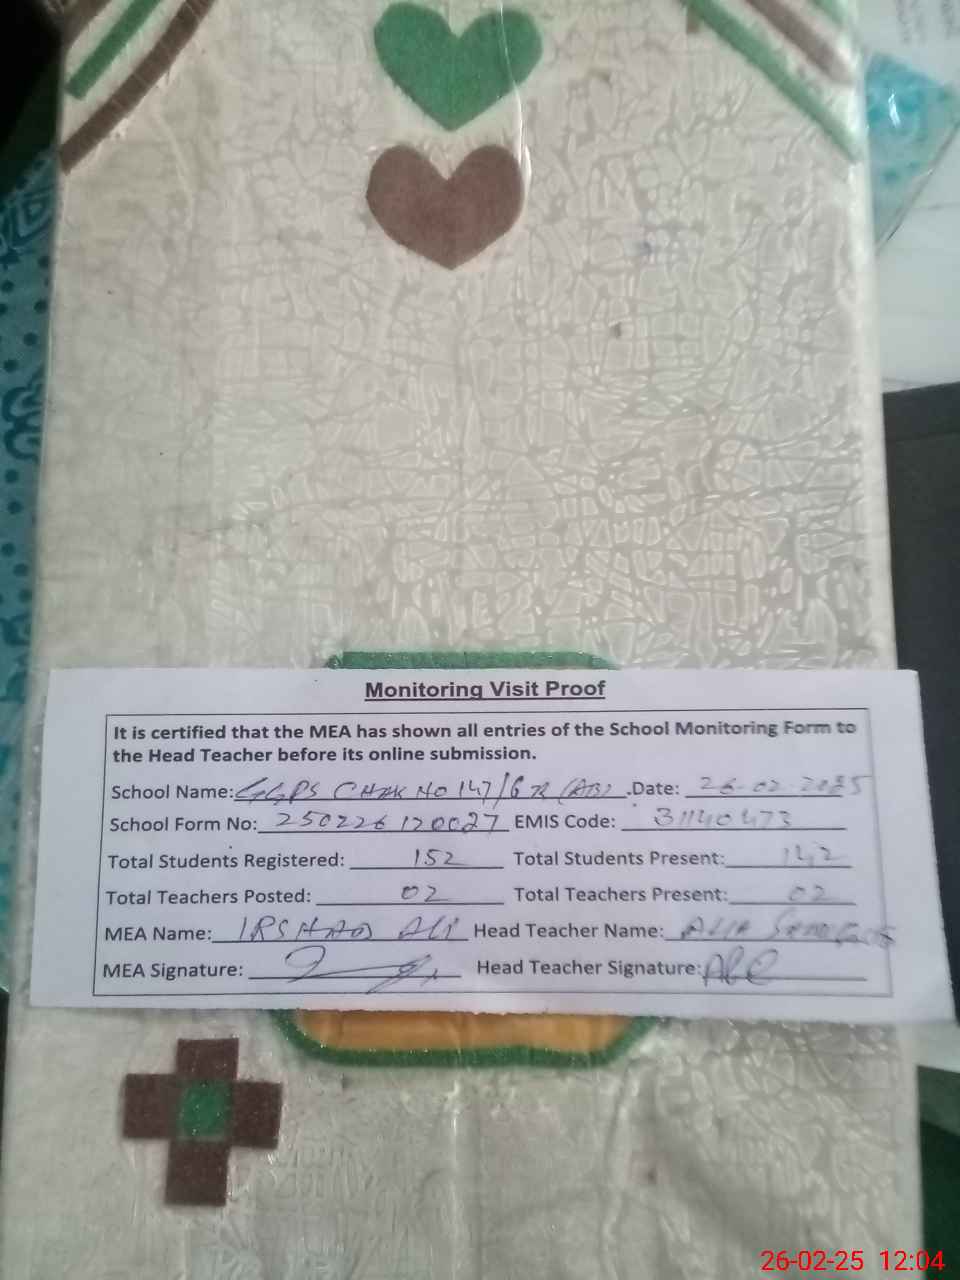 Monitoring Visit Proof
It is certified that the MEA has shown all entries of the School Monitoring Form to
the Head Teacher before its online submission.
School Name: GGPS CHAK NO 147/6R (AB) .Date: 26-02-2025
School Form No: 250226120027 EMIS Code: 31140473
Total Students Registered: 152 Total Students Present: 142
Total Teachers Posted: 02 Total Teachers Present: 02
MEA Name: IRSHAD ALI Head Teacher Name: ALIA
MEA Signature: Head Teacher Signature:
26-02-25 12:04